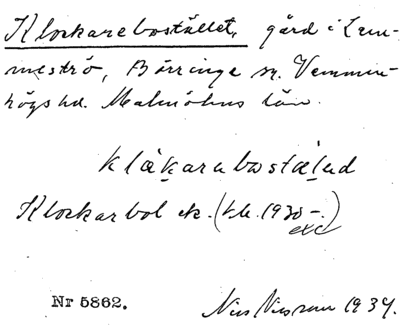 Klockarebostället, gård i Lem-
meströ, Börringe sn. Vemmen-
högs hd. Malmöhus län.
klåkarabostæləd
Klockarbol ek. (kb. 1930-.)
exc
Nr 5862. 1934.